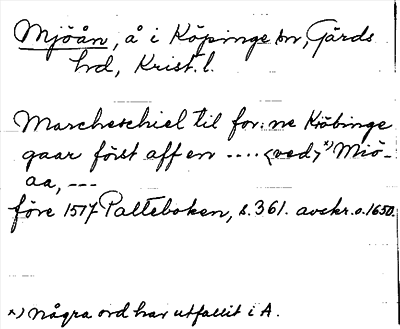 Mjöån, å i Köpinge sn, Gärds
hd, Krist. l.
Marcheschiel til for:ne Kiöbinge
gaar först aff en .... <ved> x) Miö-
aa, ---
före 1517 Palteboken, s. 361. avskr. o. 1650.
x) Några ord har utfallit i A.